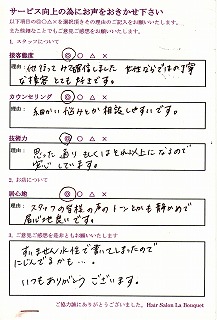 サービス向上の為にお声をおきかせ下さい
以下項目の◎○△×を選択頂きその理由のご記入をお願いいたします。
また些細なことでもご意見ご感想をお願いいたします。
1. スタッフについて
接客態度 ◎ ○ △ ×
理由:
な接客 とても好きです。
カウンセリング ◎ ○ △ ×
理由: 細かい悩みとか 相談しやすいです。
技術力 ◎ ○ △ ×
理由: 思った通り もしくはそれ以上になるので
安心しています。
2. お店について
居心地 ◎ ○ △ ×
理由: スタッフの皆様の声のトーンとかも静かめで
居心地良いです。
3. ご意見ご感想を是非ともお願いいたします
すいません水性で書いてしまったので
にじんでるかも...。
いつもありがとうございます。
ご協力誠にありがとうございました。Hair Salon La Bouquet